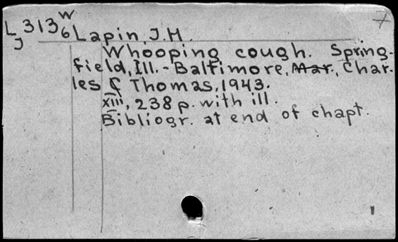 W
L 3136 Lapin, J.H.
J
Whooping cough. Spring-
field, Ill. - Baltimore, Mar., Char-
les C Thomas, 1943.
XIII, 238 p. with ill.
Bibliogr. at end of chapt.